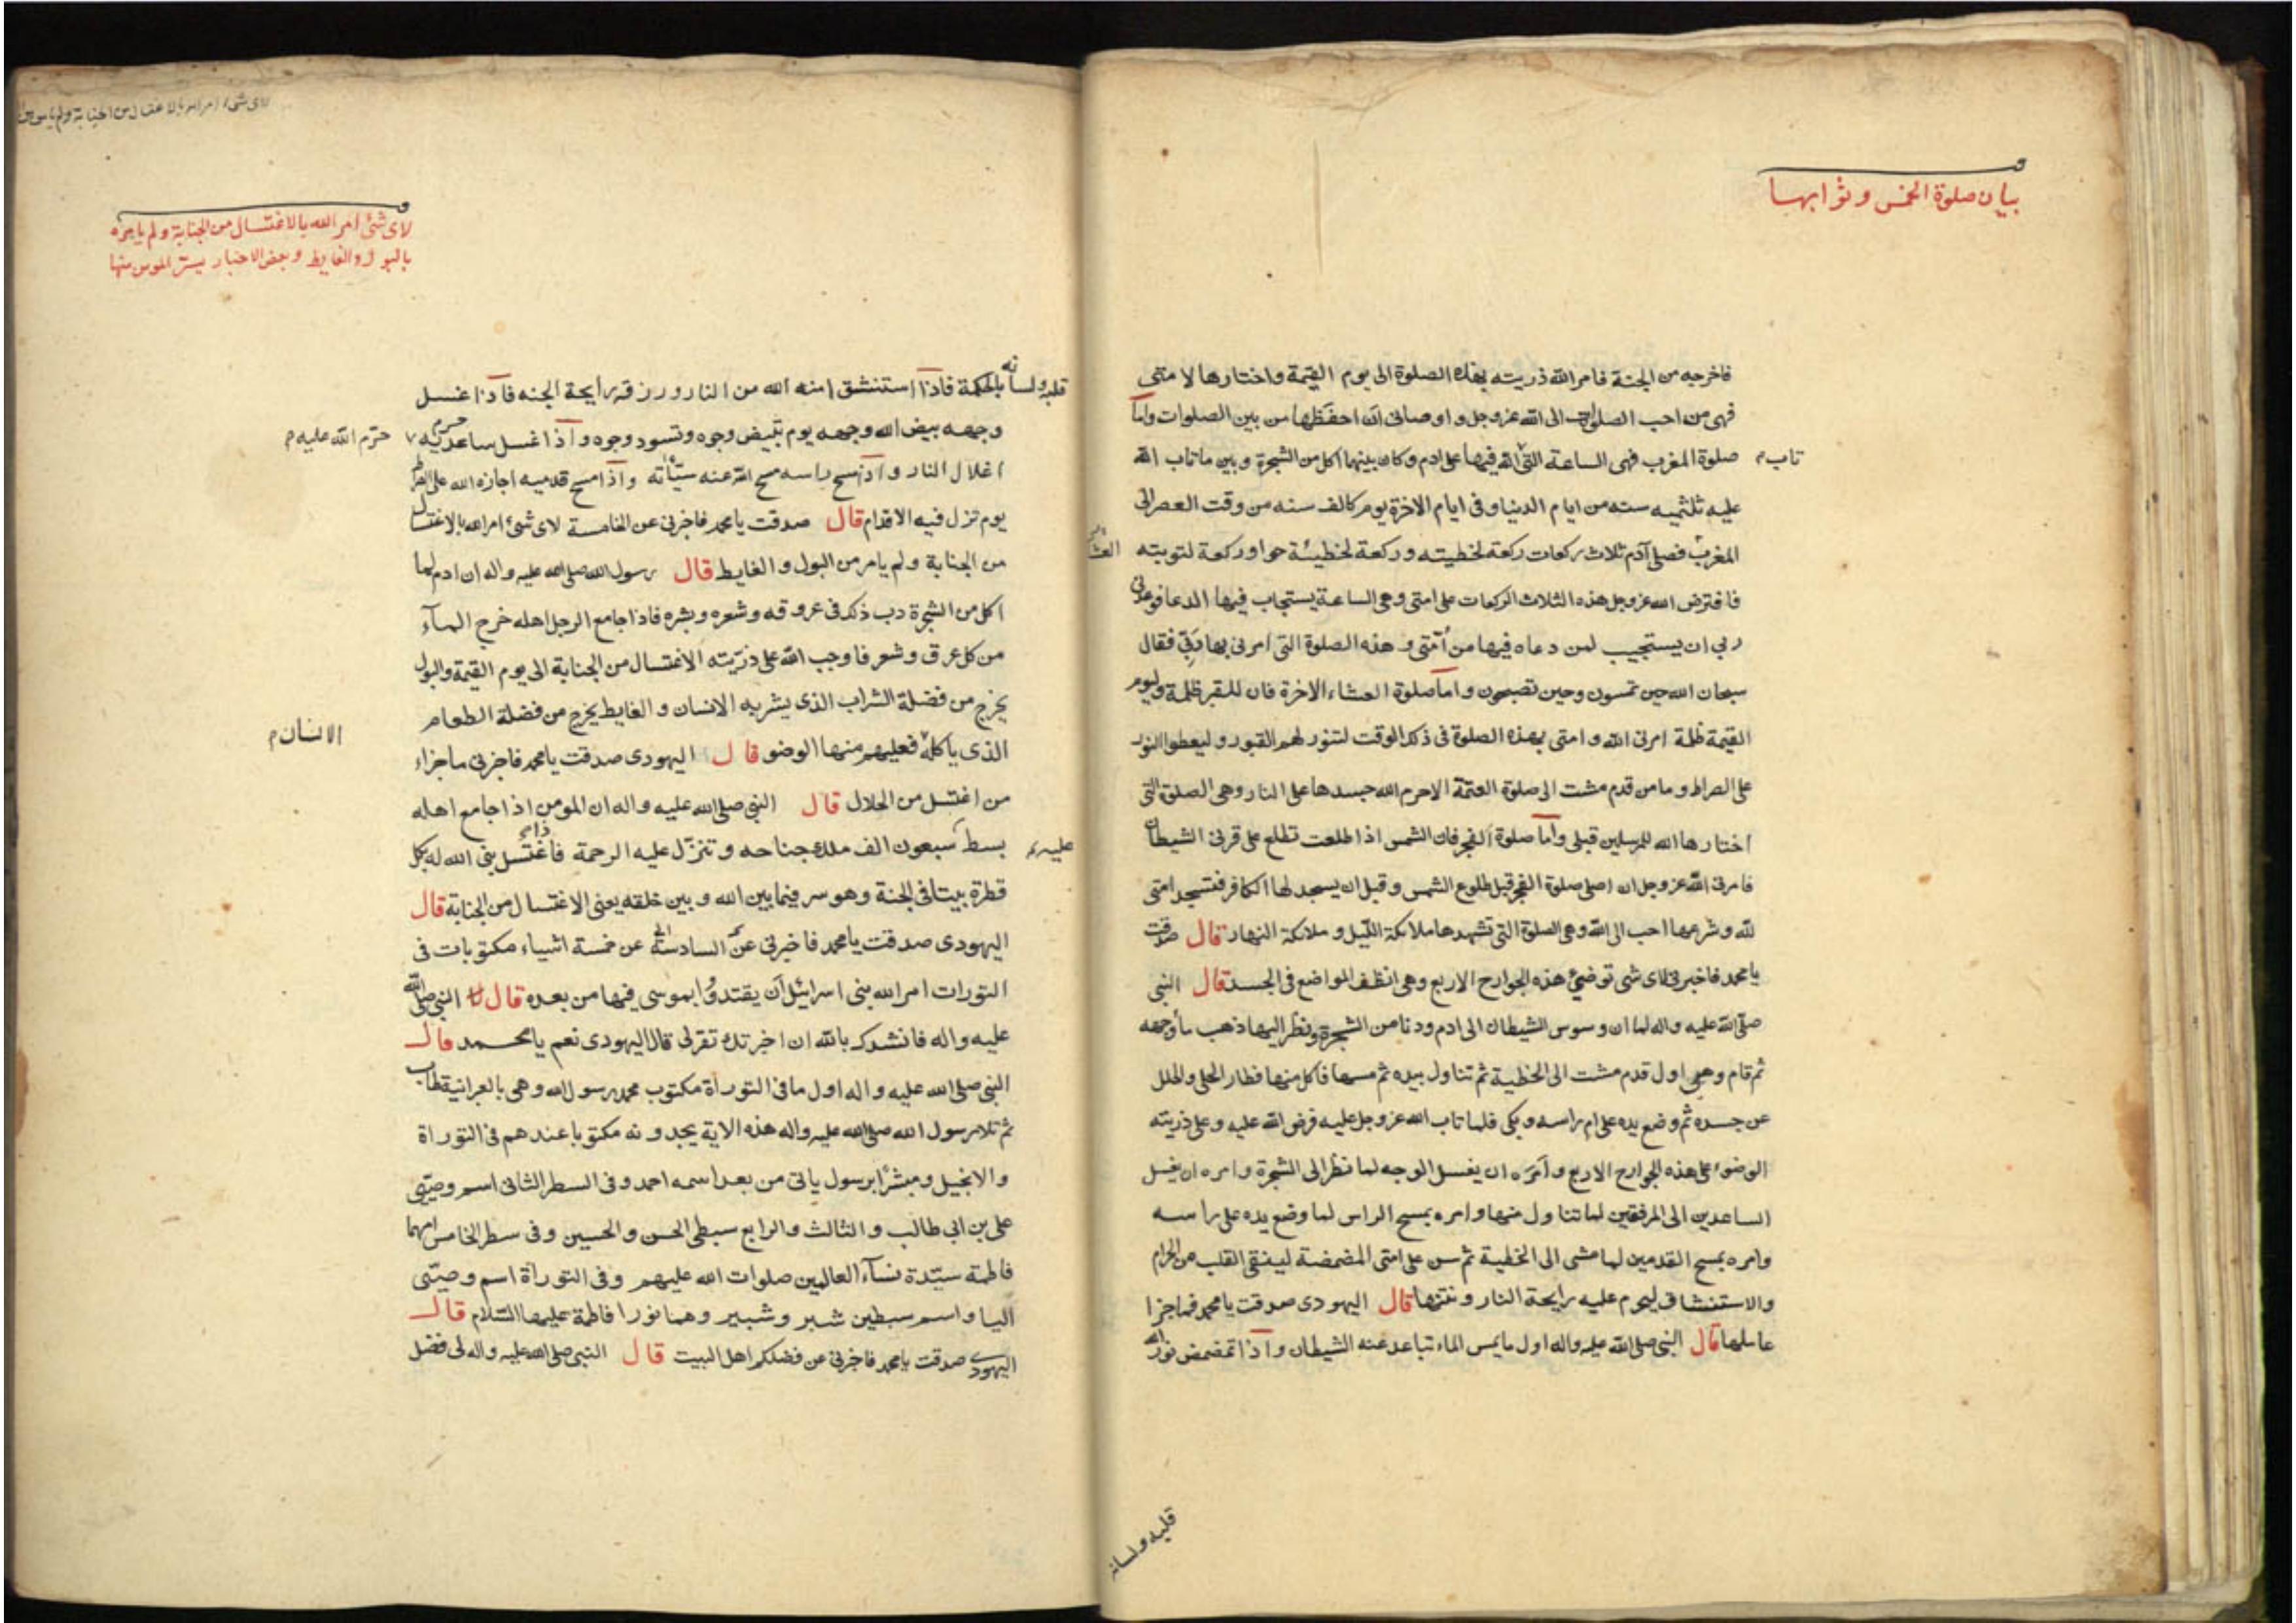 بيان صلوة الخمس وثوابها
فاخرجه من الجنة فامر الله ذريته بهذه الصلوة الى يوم القيمة واختارها لامتى
فهى من احب الصلوات الى الله عز وجل و اوصانى ان احفظها من بين الصلوات واما
صلوة المغرب فهى الساعة التى الله فيها على ادم وكان بينهما اكل من الشجرة و بين ما تاب الله
تاب م
عليه ثلثميه سنه من ايام الدنيا و فى ايام الاخرة يوم كالف سنه من وقت العصر الى
المغرب فصلى آدم ثلاث ركعات ركعة لخطيته و ركعة لخطيئة حوا و ركعة لتوبته
فافترض الله عز وجل هذه الثلاث الركعات على امتى وهى الساعة يستجاب فيها الدعا فوعدنى
ربى ان يستجيب لمن دعاه فيها من اُمّتى و هذه الصلوة التى امرنى بها ربّى فقال
سبحان الله حين تمسون وحين تصبحون و اما صلوة العشاء الاخرة فان للقبر ظلمة وليوم
القيمة ظلمة امرنى الله و امتى بهذه الصلوة فى ذلك الوقت لتنور لهم القبور و ليعطوا النور
على الصراط و ما من قدم مشت الى صلوة العتمة الا حرم الله جسدها على النار وهى الصلوة التى
اختارها الله للمرسلين قبلى و اما صلوة الفجر فان الشمس اذا طلعت تطلع على قرنى الشيطان
فامرنى الله عز وجل ان اصلى صلوة الفجر قبل طلوع الشمس و قبل ان يسجد لها الكافر فتسجد امتى
لله و شرعها احب الى الله وهى الصلوة التى تشهدها ملائكة الليل و ملائكة النهار قال صدقت
يا محمد فاخبرنى لاى شى توضئ هذه الجوارح الاربع وهى انظف المواضع فى الجسد قال النبى
صلى الله عليه واله لما ان وسوس الشيطان الى ادم و دنا من الشجرة و نظر اليها ذهب ماء وجهه
ثم قام وهى اول قدم مشت الى الخطية ثم تناول بيده ثم مسها فاكل منها فطار الحلى والحلل
عن جسده ثم وضع يده على ام راسه و بكى فلما تاب الله عز وجل عليه فرض الله عليه و على ذريته
الوضوء على هذه الجوارح الاربع و اَمَرَه ان يغسل الوجه لما نظر الى الشجرة و امره ان يغسل
الساعدين الى المرفقين لما تناول منها و امره بمسح الراس لما وضع يده على راسه
وامره بمسح القدمين لما مشى الى الخطية ثم سن على امتى المضمضة لينقى القلب من الحرام
والاستنشاق ليحرم عليه رايحة النار و نتنها قال اليهودى صدقت يا محمد فما جزا
عاملها قال النبى صلى الله عليه واله اول ما يمس الماء تباعد عنه الشيطان و اذا تمضمض نور الله
قلبه ولسانه
لاى شئ امر الله بالاغتسال من الجنابة ولم يامر
لاى شئ امر الله بالاغتسال من الجنابة و لم يامره
بالبول والغايط
قلبه ولسانه بالحكمة فاذا استنشق امنه الله من النار و رزقه رايحة الجنه فاذا غسل
وجهه بيض الله وجهه يوم تبيض وجوه وتسود وجوه و اذا غسل ساعديه حرم
حرّم الله عليه م
اغلال النار و اذا مسح راسه مسح الله عنه سيّأته واذا مسح قدميه اجازه الله على الصراط
يوم تزل فيه الاقدام قال صدقت يا محمد فاخبرنى عن الخامسة لاى شئ امر الله بالاغتسال
من الجنابة و لم يامر من البول و الغايط قال رسول الله صلى الله عليه واله ان ادم لما
اكل من الشجرة دب ذلك فى عروقه و شعره و بشره فاذا جامع الرجل اهله خرج المآء
من كل عرق و شعر فاوجب الله على ذرّيته الاغتسال من الجنابة الى يوم القيمة والبول
يخرج من فضلة الشراب الذى يشربه الانسان و الغايط يخرج من فضلة الطعام
الانسان م
الذى ياكله فعليهم منها الوضو قال اليهودى صدقت يا محمد فاخبرنى ما جزاء
من اغتسل من الحلال قال النبى صلى الله عليه واله ان المومن اذا جامع اهله
بسط سبعون الف ملك جناحه و تنزّل عليه الرحمة فاذا اغتسل بنى الله له بكل
عليه م
قطرة بيتا فى الجنة و هو سر فيما بين الله و بين خلقه يعنى الاغتسال من الجنابة قال
اليهودى صدقت يا محمد فاخبرنى عن السادسة عن خمسة اشياء مكتوبات فى
التورات امر الله بنى اسرائيل ان يقتدوا بموسى فيها من بعده قال النبى صلى الله
عليه واله فانشدك بالله ان اخبرتك تقر لى قال اليهودى نعم يا محمد قال
النبى صلى الله عليه و اله اول ما فى التوراة مكتوب محمد رسول الله و هى بالعبرانية طاب
ثم تلا رسول الله صلى الله عليه واله هذه الاية يجدونه مكتوبا عندهم فى التوراة
والانجيل و مبشرا برسول ياتى من بعد اسمه احمد و فى السطر الثانى اسم وصيّى
على بن ابى طالب و الثالث والرابع سبطى الحسن و الحسين و فى سطر الخامس امهما
فاطمة سيّدة نسآء العالمين صلوات الله عليهم و فى التوراة اسم وصيّى
اليا و اسم سبطين شبر و شبير و هما نورا فاطمة عليها السّلام قال
اليهودى صدقت يا محمد فاخبرنى عن فضلكم اهل البيت قال النبى صلى الله عليه واله لى فضل